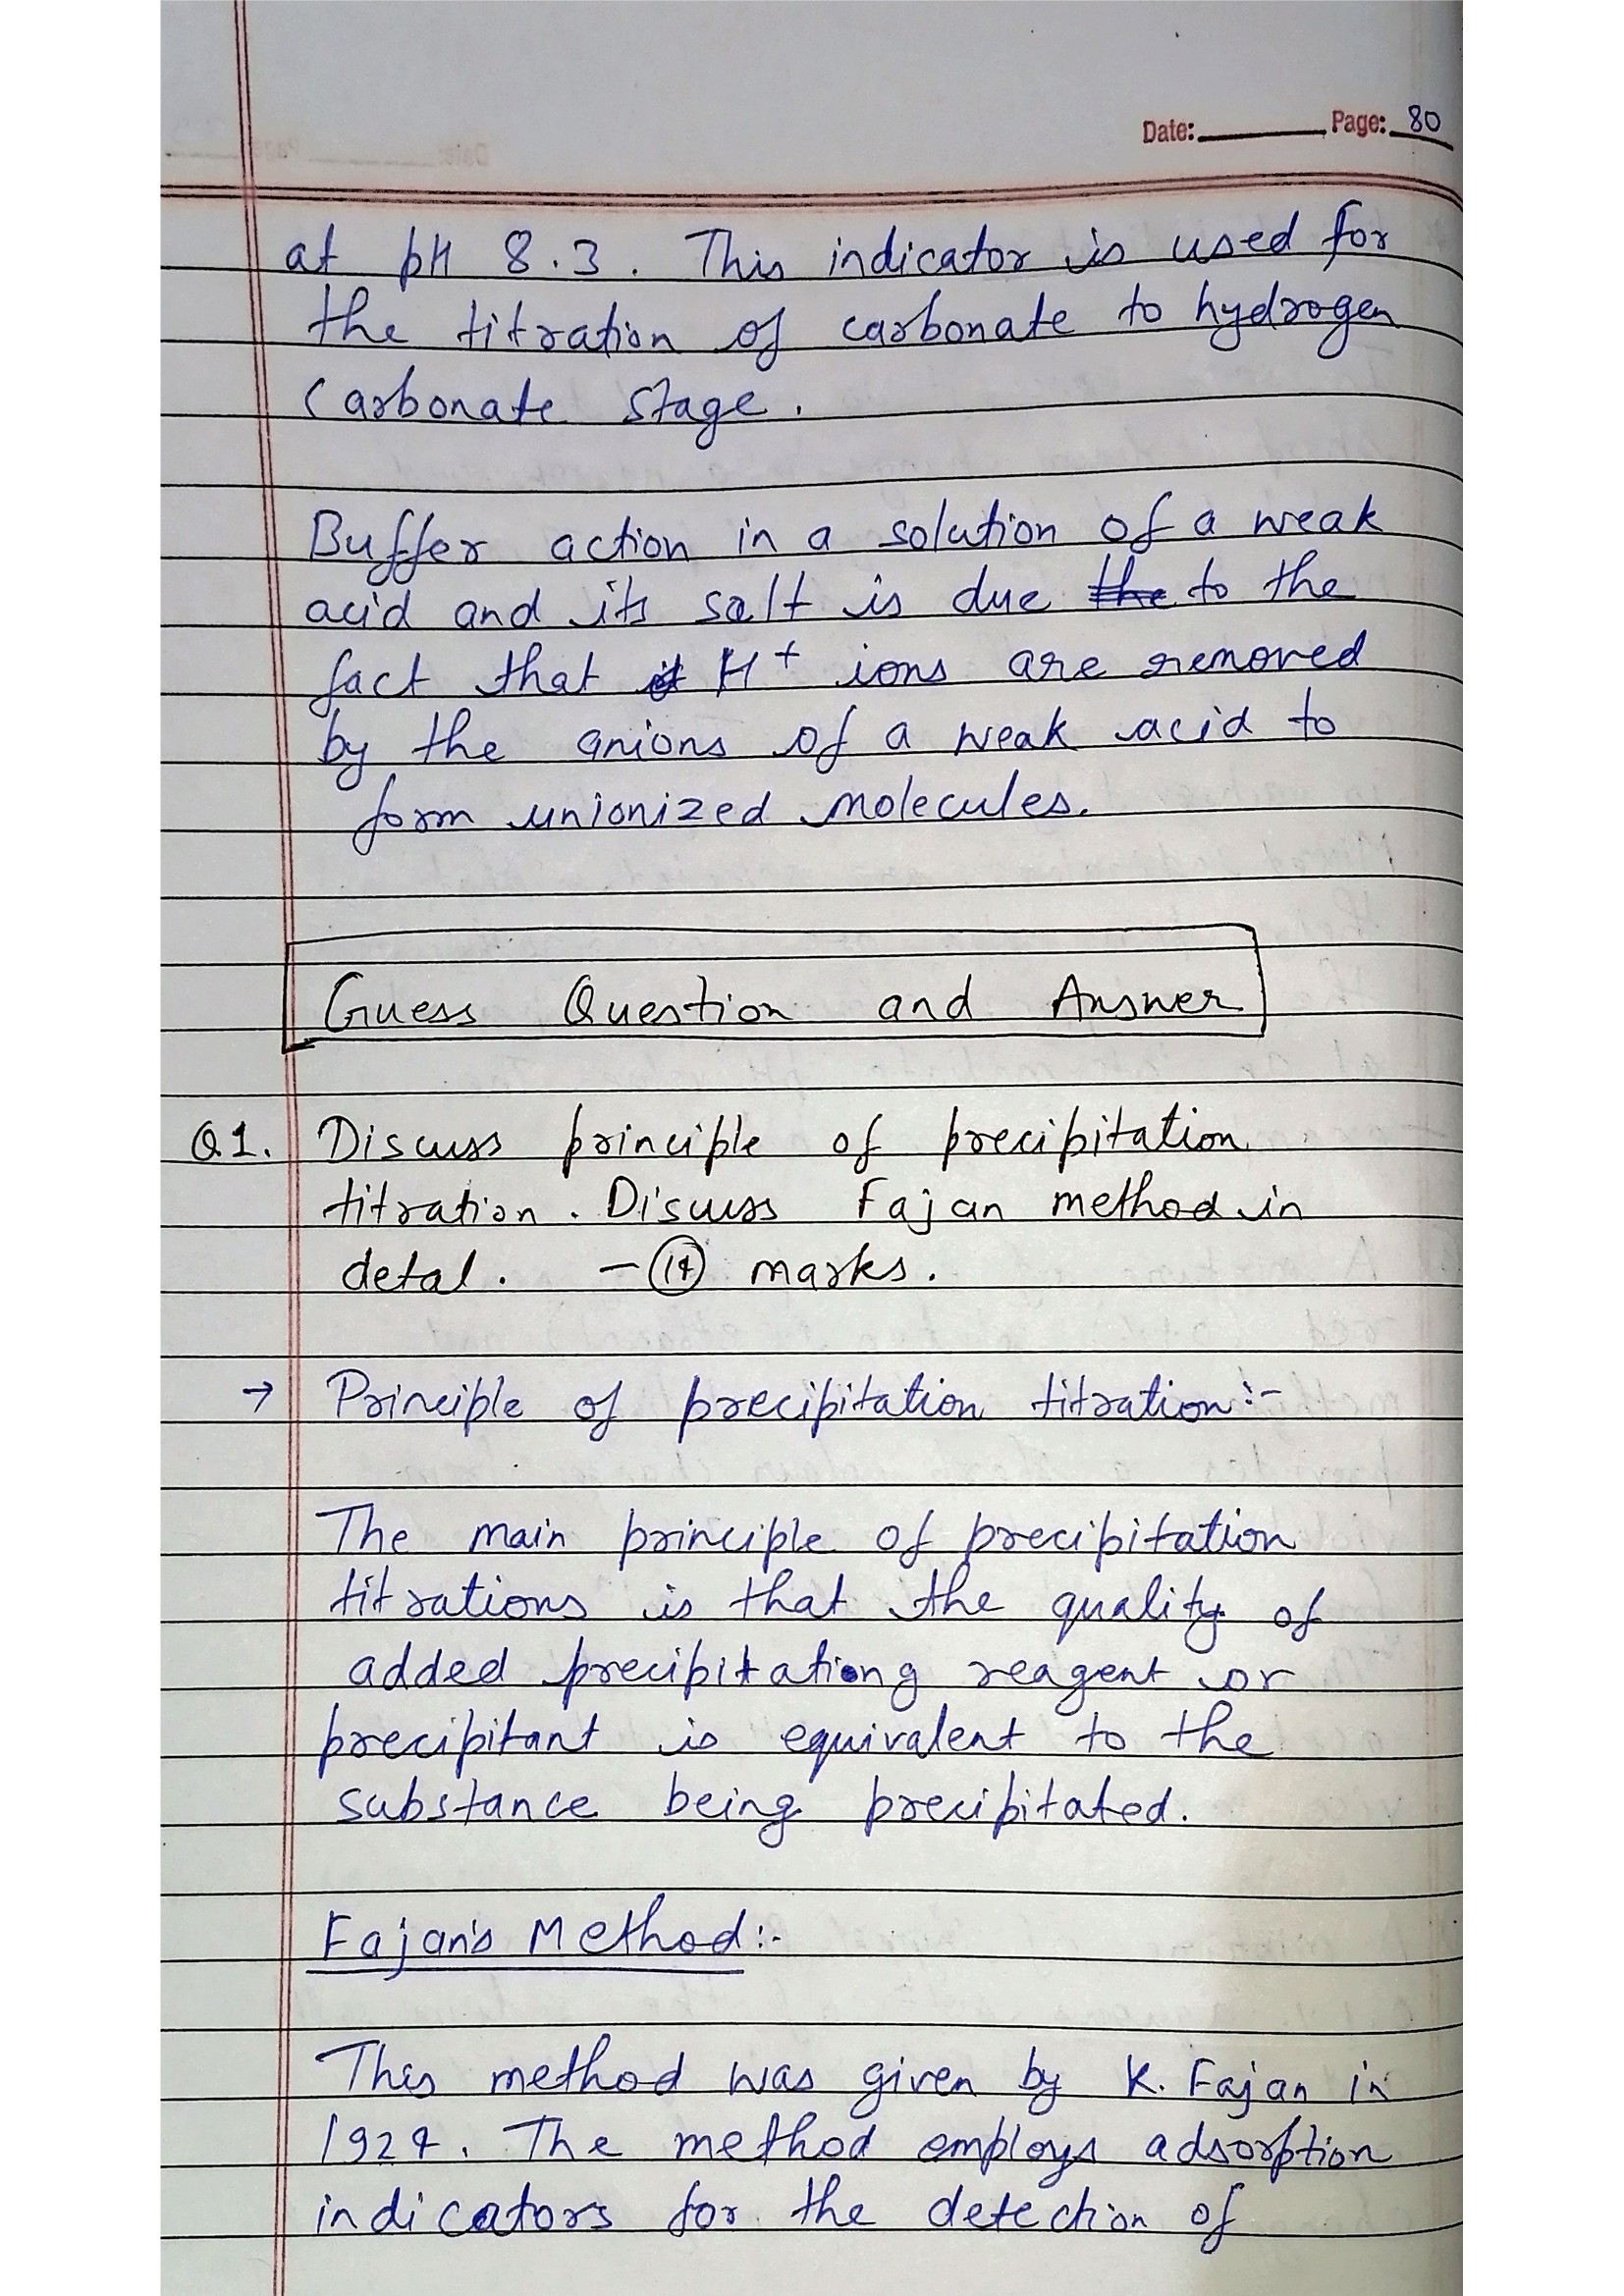 Date: Page: 80
at pH 8.3. This indicator is used for
the titration of carbonate to hydrogen
carbonate stage.
Buffer action in a solution of a weak
acid and its salt is due the to the
fact that H+ ions are removed
by the anions of a weak acid to
form unionized molecules.
Guess Question and Answer
Q1. Discuss principle of precipitation
titration. Discuss Fajan method in
detal. - (14) marks.
→ Principle of precipitation titration:-
The main principle of precipitation
titrations is that the quality of
added precipitationg reagent or
precipitant is equivalent to the
substance being precipitated.
Fajan's Method:-
This method was given by K. Fajan in
1924. The method employs adsorption
indicators for the detection of